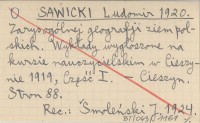 O SAWICKI Ludomir 1920.
Zarys ogólnej geografji ziem pol-
skich. Wykłady wygłoszone na
kursie nauczycielskim w Cieszy-
nie 1919, Część I. — Cieszyn.
Stron 88.
Rec.: Smoleński J. 1924.